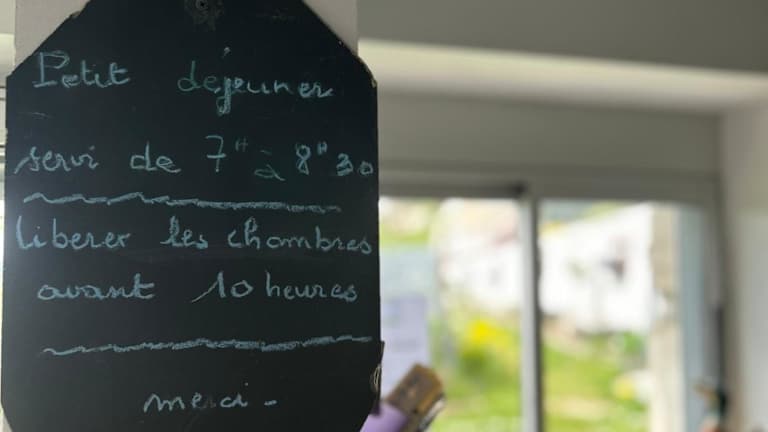 Petit déjeuner
servi de 7H à 8H30
liberer les chambres
avant 10 heures
merci -